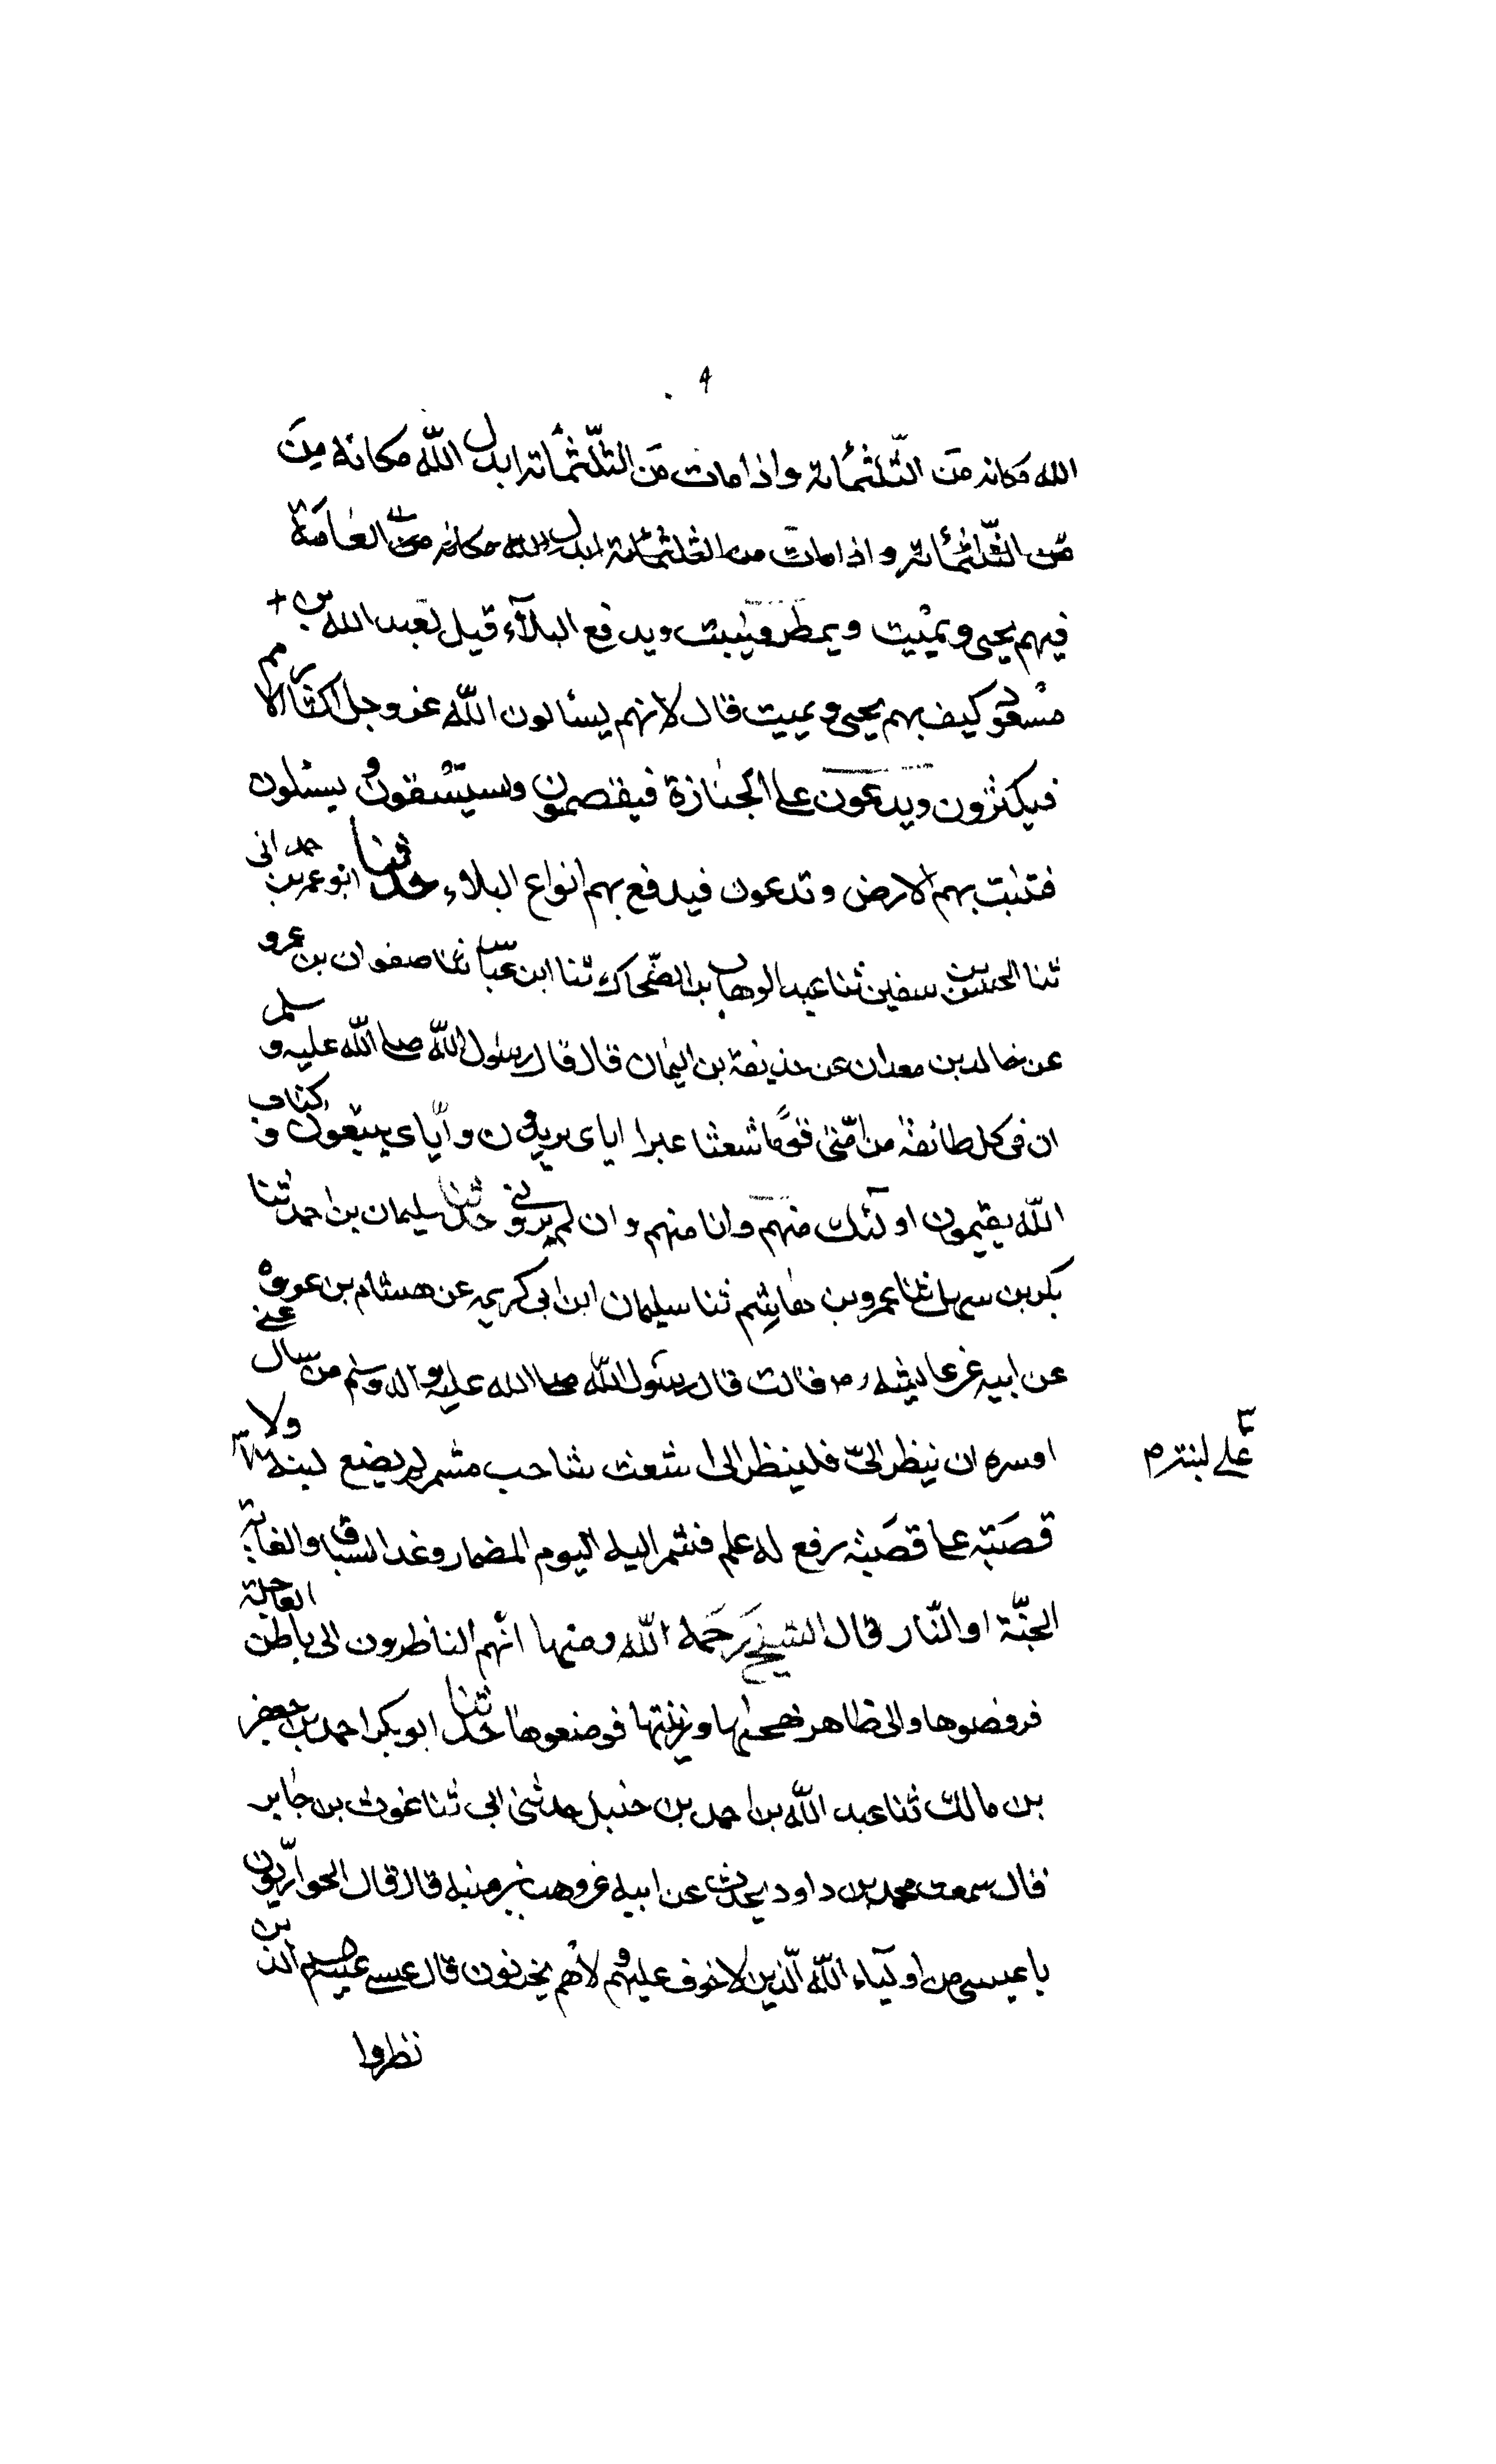 ٩
الله مكانه من الثلثمائة واذا مات من الثلثمائة ابدل الله مكانه من
من الثلثمائة واذا مات من الثلثمائة ابدل الله مكانه من العامة
فيهم يحيى ويميت ويمطر وينبت ويدفع البلآء قيل لعبد الله بن
مسعود كيف بهم يحيى ويميت قال لانهم يسألون الله عز وجل اكثار الامم
فيكثرون ويدعون على الجبابرة فيقصمون ويستسقون و يسئلون
فتنبت بهم الارض وتدعون فيدفع بهم انواع البلاء حدثنا ابو عمر بن حمدانى
ثنا الحسن بن سفين ثنا عبد الوهاب بن الضحاك ثنا ابن عياس ثنا صفوان بن عمرو
عن خالد بن معدان عن حذيفة بن اليمان قال قال رسول الله صلى الله عليه وسلم
ان فى كل طائفة من امتى قوما شعثا غبرا اياى يريدون واياى يبتغون و كتاب
الله يقيمون اولئك منهم وانا منهم وان لم يرونى حدثنا سليمان بن احمد ثنا
بكر بن سهل ثنا عمرو بن هاشم ثنا سليمان ابن ابى كريمه عن هشام بن عروه
عن ابيه عن عايشه قالت قال رسول الله صلى الله عليه واله وسلم من سال عنى
او سره ان ينظر الىّ فلينظر الى اشعث شاحب مشمر لم يضع لبنة ولا
على لبنة
قصبة على قصبة رفع له علم فشمر اليه اليوم المضمار وغدا السباق والغاية
الجنّة او النّار قال الشيخ رحمه الله ومنها انهم الناظرون الى باطن العاجلة
فرفضوها والى ظاهر بهجتها وزينتها فوضعوها حدثنا ابو بكر احمد بن جعفر
بن مالك ثنا عبد الله بن احمد بن حنبل حدثنى ابى ثنا غوث بن جابر
قال سمعت محمد بن داود يحدث عن ابيه عن وهب بن منبه قال قال الحواريون
يا عيسى من اوليآء الله الّذين لا خوف عليهم ولا هم يحزنون قال عيسى الذين
نظروا